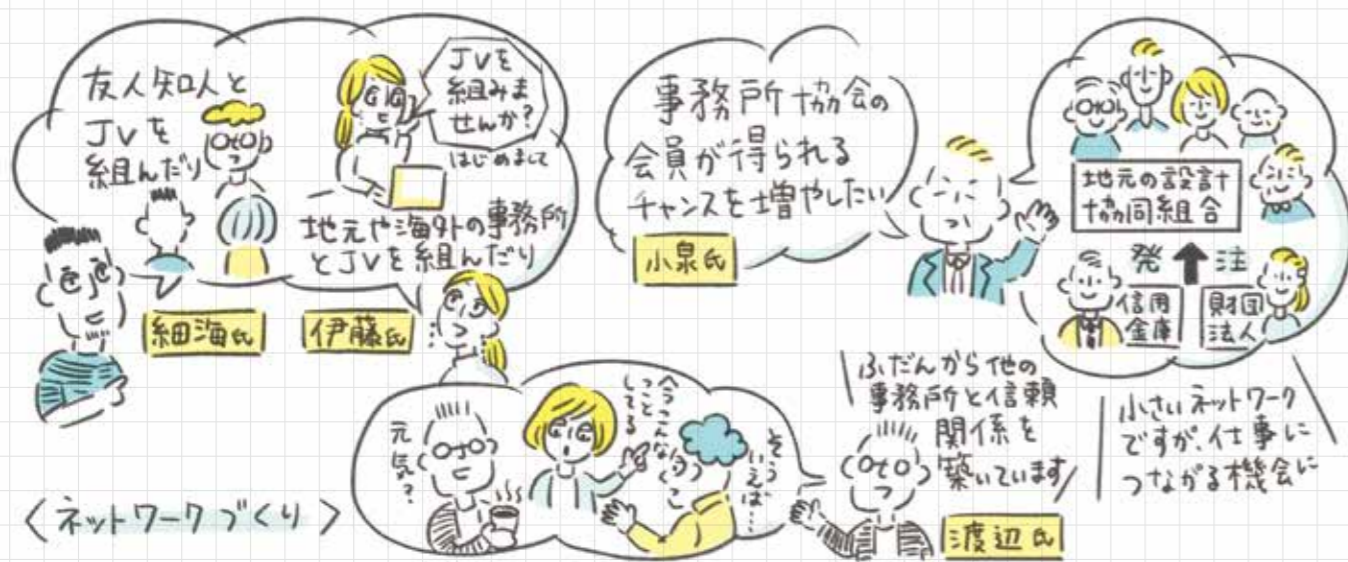 友人知人と
JVを
組んだり
JVを
組みま
せんか？
はじめまして
地元や海外の事務所
とJVを組んだり
細海氏
伊藤氏
事務所協会の
会員が得られる
チャンスを増やしたい
小泉氏
地元の設計
協同組合
発注
信用
金庫
財団
法人
小さいネットワーク
ですが、仕事に
つながる機会に
元気？
今こんな
こっと
してる
そう
いえば…
ふだんから他の
事務所と信頼
関係を
築いています
渡辺氏
〈ネットワークづくり〉